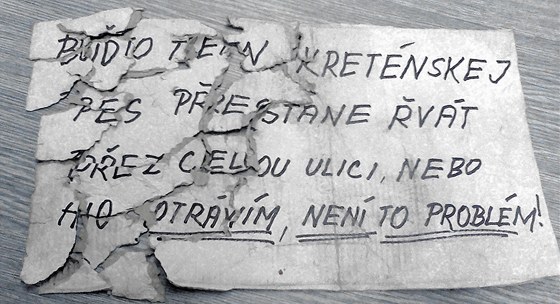 BUĎTO TEN KRETÉNSKEJ
PES PŘESTANE ŘVÁT
PŘEZ CELOU ULICI, NEBO
HO OTRÁVÍM, NENÍ TO PROBLÉM!